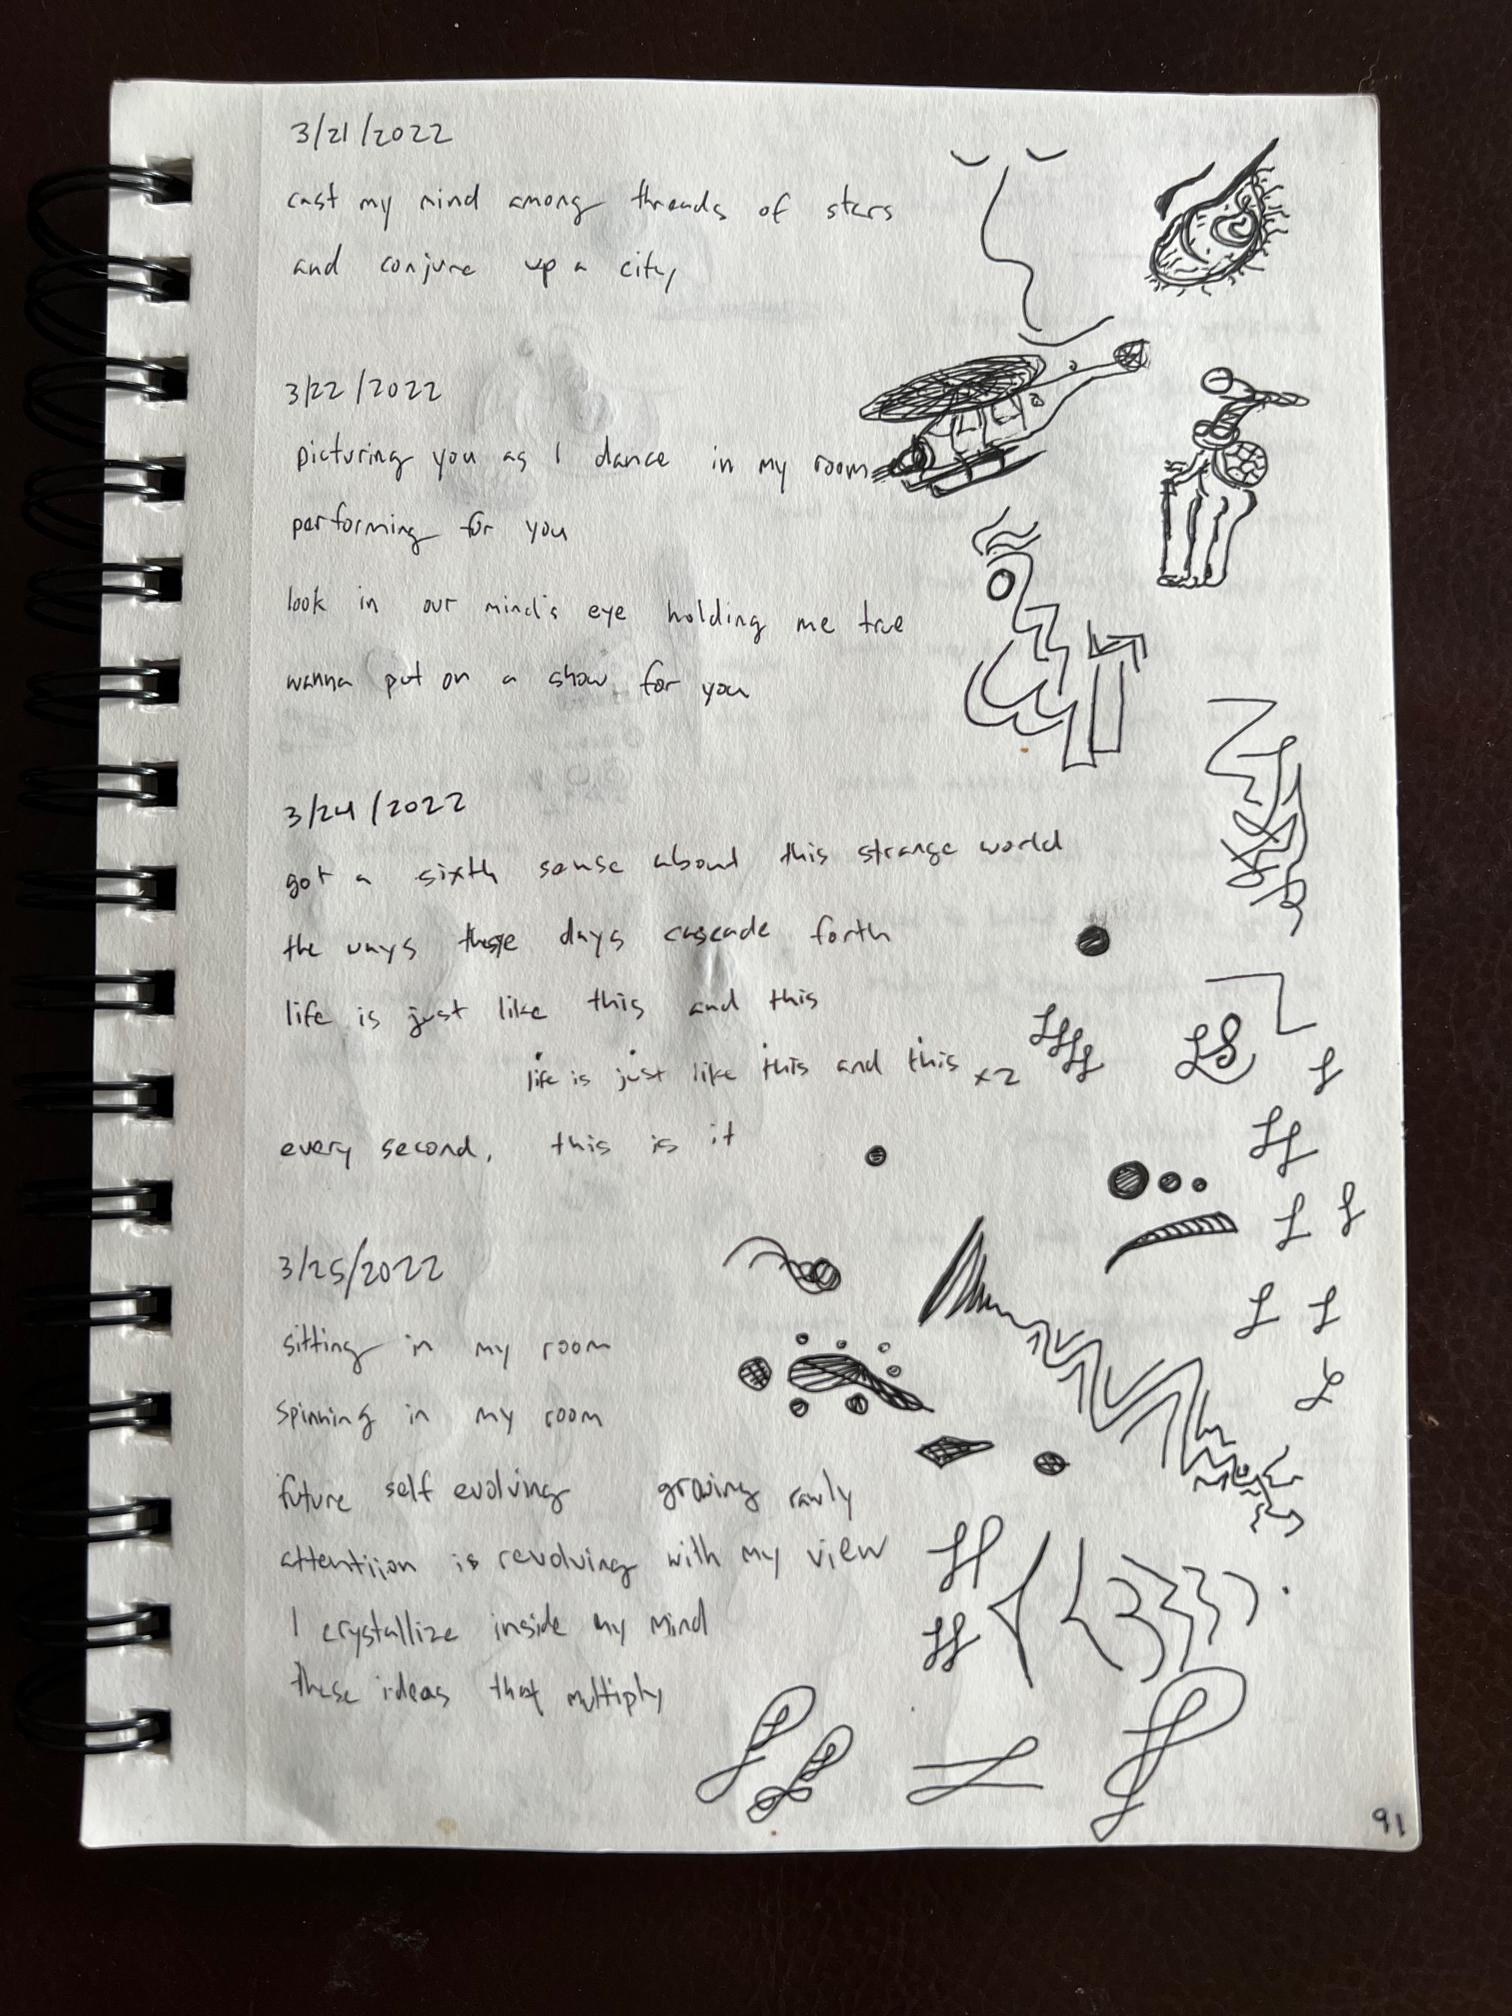 3/21/2022
cast my mind among threads of stars
and conjure up a city
3/22/2022
picturing you as I dance in my room
performing for you
look in our mind's eye holding me true
wanna put on a show for you
3/24/2022
got a sixth sense about this strange world
the ways these days cascade forth
life is just like this and this
life is just like this and this x2
every second, this is it
3/25/2022
sitting in my room
spinning in my room
future self evolving growing
attention is revolving with my view
I crystallize inside my mind
these ideas that multiply
91